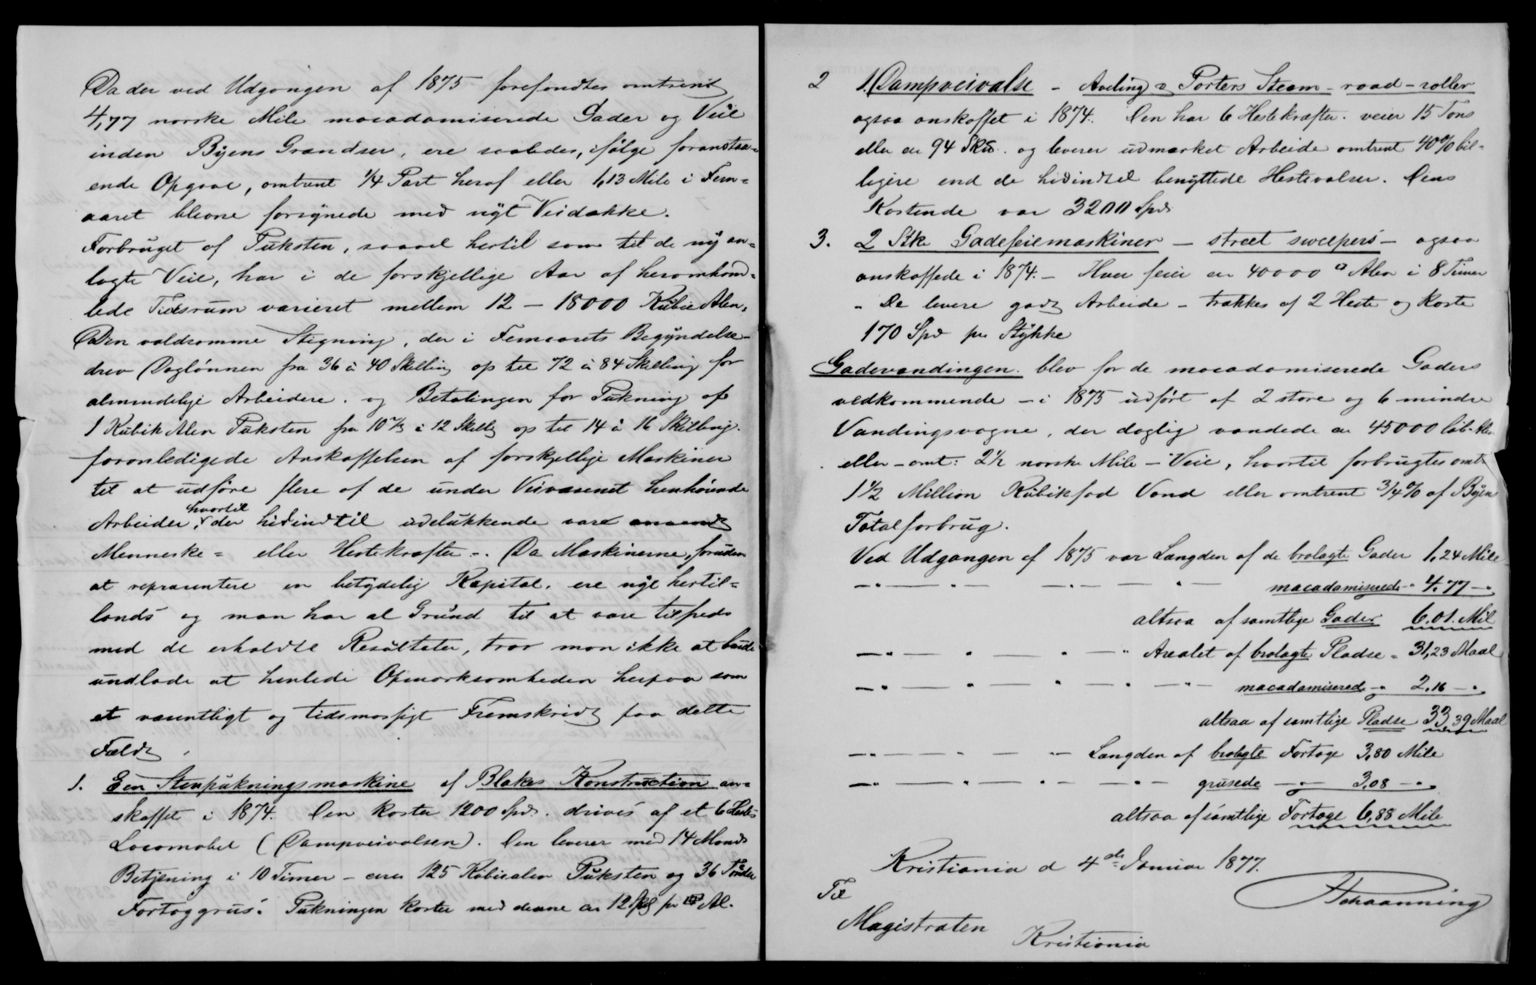 Da der ved Udgangen af 1875 forefandtes omtrent
4,77 norske Mile macadamiserede Gader og Veie
inden Byens Grændser, ere saaledes, ifølge foranstaa-
ende Opgave, omtrent 1/4 Part heraf eller 1,13 Mile i Fem-
aaret blevne forsynede med nyt Veidække.
Forbruget af Puksten, saavel hertil som til de ny an-
lagte Veie, har i de forskjellige Aar af heromhand-
lede Tidsrum varieret mellem 12 – 18000 Kubic Alen.
Den voldsomme Stigning, der i Femaarets Begyndelse
drev Daglønnen fra 36 à 40 Skilling op til 72 à 84 Skilling for
almindelige Arbeidere, og Betalingen for Pukning af
1 Kubik Alen Puksten fra 10 1/2 à 12 Skillg op til 14 à 16 Skilling.
foranledigede Anskaffelsen af forskjellige Maskiner
til at udføre flere af de under Veivæsenet henhørende
Arbeider, hvortil der hidindtil udelukkende vare anvendt
Menneske- eller Hestekræfter –. Da Maskinerne, foruden
at repræsentere en betydelig Kapital, ere nye hertil-
lands og man har al Grund til at være tilfreds
med de erholdte Resultater, tror man ikke at burde
undlade at henlede Opmærksomheden herpaa som
et væsentligt og tidsmæssigt Fremskridt paa dette
Feldt.
1. Een Stenpukningsmaskine af Blakes Konstruction an-
skaffet i 1874. Den koster 1200 Spd. drives af et 6 Hestes
Locomobil (Dampveivalsen). Den leverer med 14 Mands
Betjening i 10 Timer – circa 125 Kubicalen Puksten og 36 Tønder
Fortoggrus. Pukningen koster med denne ca 12 Skg pr Al.
2 1 Dampveivalse – Aveling & Porters Steam-road-roller
ogsaa anskaffet i 1874. Den har 6 Hestekræfter. veier 15 Tons
eller ca 94 Sk℔. og leverer udmærket Arbeide omtrent 40% bil-
ligere end de hidindtil benyttede Hestevalser. Dens
Kostende var 3200 Spd
3. 2 Stk Gadefeiemaskiner – street sweepers – ogsaa
anskaffede i 1874. – Hver feier ca 40000 □ Alen i 8 Timer
– De levere godt Arbeide – trækkes af 2 Heste og koste
170 Spd per Stykke
Gadevandingen. blev for de macadamiserede Gaders
vedkommende – i 1875 udført af 2 store og 6 mindre
Vandingsvogne, der daglig vandede ca 45000 løb. Alen
eller – omt: 2 1/2 norske Mile – Veie, hvortil forbrugtes omtr
1 1/2 Million Kubikfod Vand eller omtrent 3/4 % af Byens
Totalforbrug.
Ved Udgangen af 1875 var Længden af de brolagte Gader 1,24 Mile
– " – – – – – " macadamiserede " 4.77 – "
altsaa af samtlige Gader 6.01. Mil
– " – – – " – " Arealet af brolagte Pladse – 31,23 Maal
– " – – – " – " – macadamiserede – " 2.16 – "
altsaa af samtlige Pladse 33,39 Maal
– " – – – " – – Længden af brolagte Fortoge 3,80 Mile
– " – – – " – " – grusede – " – 3,08 – "
altsaa af samtlige Fortoge 6,88 Mile
Kristiania d 4de Januar 1877.
Schaanning
Til
Magistraten
Kristiania